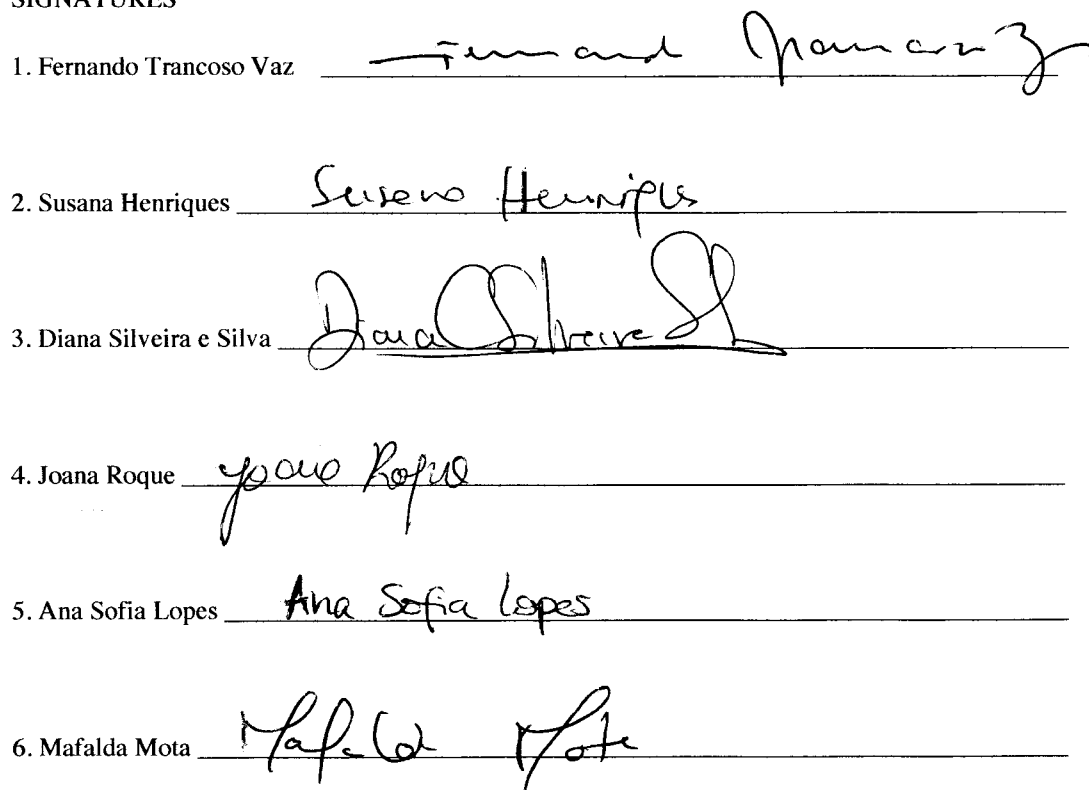 SIGNATURES
1. Fernando Trancoso Vaz
2. Susana Henriques Susana Henriques
3. Diana Silveira e Silva Diana Silveira
4. Joana Roque Joana Roque
5. Ana Sofia Lopes Ana Sofia Lopes
6. Mafalda Mota Mafalda Mota